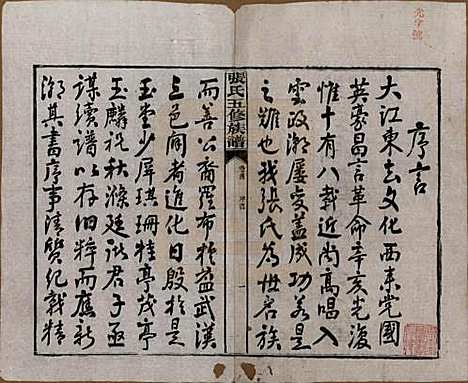 序言
大江東去文化西來党國
英豪昌言革命辛亥光復
惟十有八載近尚高唱入
雲政潮屢变蓋成功若是
之難也我張氏為世居族
張氏五修族譜
卷首
序言
一
而善公裔羅布於益武漢
三邑间者進化日殷於是
玉堂少屏琪珊桂亭茂亭
玉麟祝秋滌廷詠君子亟
謀續譜以存旧粹而應新
潮其書序事清贊紀載精